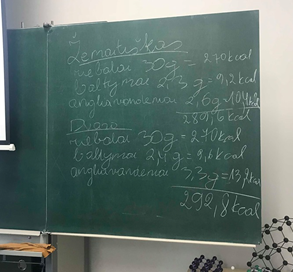 Žemaitiškas
riebalai 30g = 270kcal
baltymai 2,3g = 9,2kcal
angliavandeniai 2,6g 10,4kcal
289,6 kcal
Dvaro
riebalai 30g = 270kcal
baltymai 2,4g = 9,6kcal
angliavandeniai 3,3g = 13,2kcal
292,8kcal